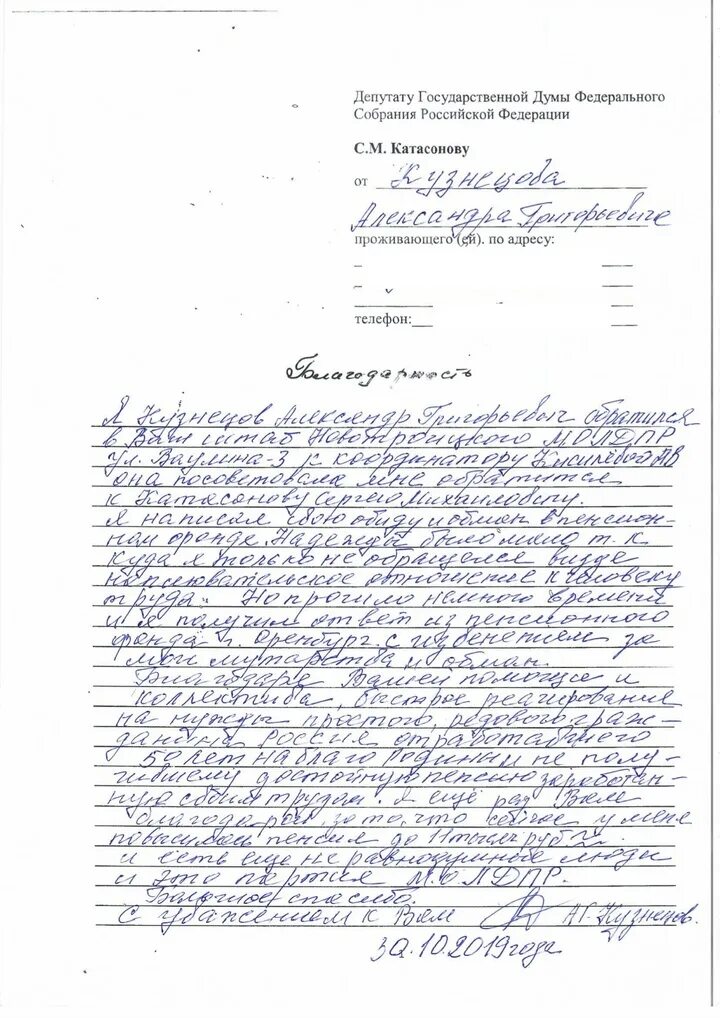 Депутату Государственной Думы Федерального
Собрания Российской Федерации
С.М. Катасонову
от Кузнецова
Александра Григорьевича
проживающего (ей). по адресу:
телефон:
Благодарность
Я Кузнецов Александр Григорьевич обратился
в Ваш штаб Новотроицкого М.О.ЛДПР
ул. Ваулина-3 к координатору Кисилёвой АВ
она посоветовала мне обратится
к Катасонову Сергею Михайловичу.
Я написал свою обиду и обман в пенсион-
ном фонде. Надежды было мало т. к.
куда я только не обращался везде
наплювательское отношение к человеку
труда. Но прошло немного времени
и я получил ответ из пенсионного
фонда г. Оренбург. с извенением за
мои мутарства и обман.
Благодаря Вашей помощи и
коллектива, быстрое реагирование
на нужды простого, редового граж-
данина Россия отработавшего
50 лет на благо Родины и не полу-
чившему достойную пенсию заработан-
ную своим трудом. Я ещё раз Вам
благодарен, за то, что сейчас у меня
повысилась пенсия до 11 тысяч руб
и есть еще не равнодушные люди
и это партия М.О.ЛДПР.
Большое спасибо.
С уважением к Вам А.Г. Кузнецов.
30.10.2019 года